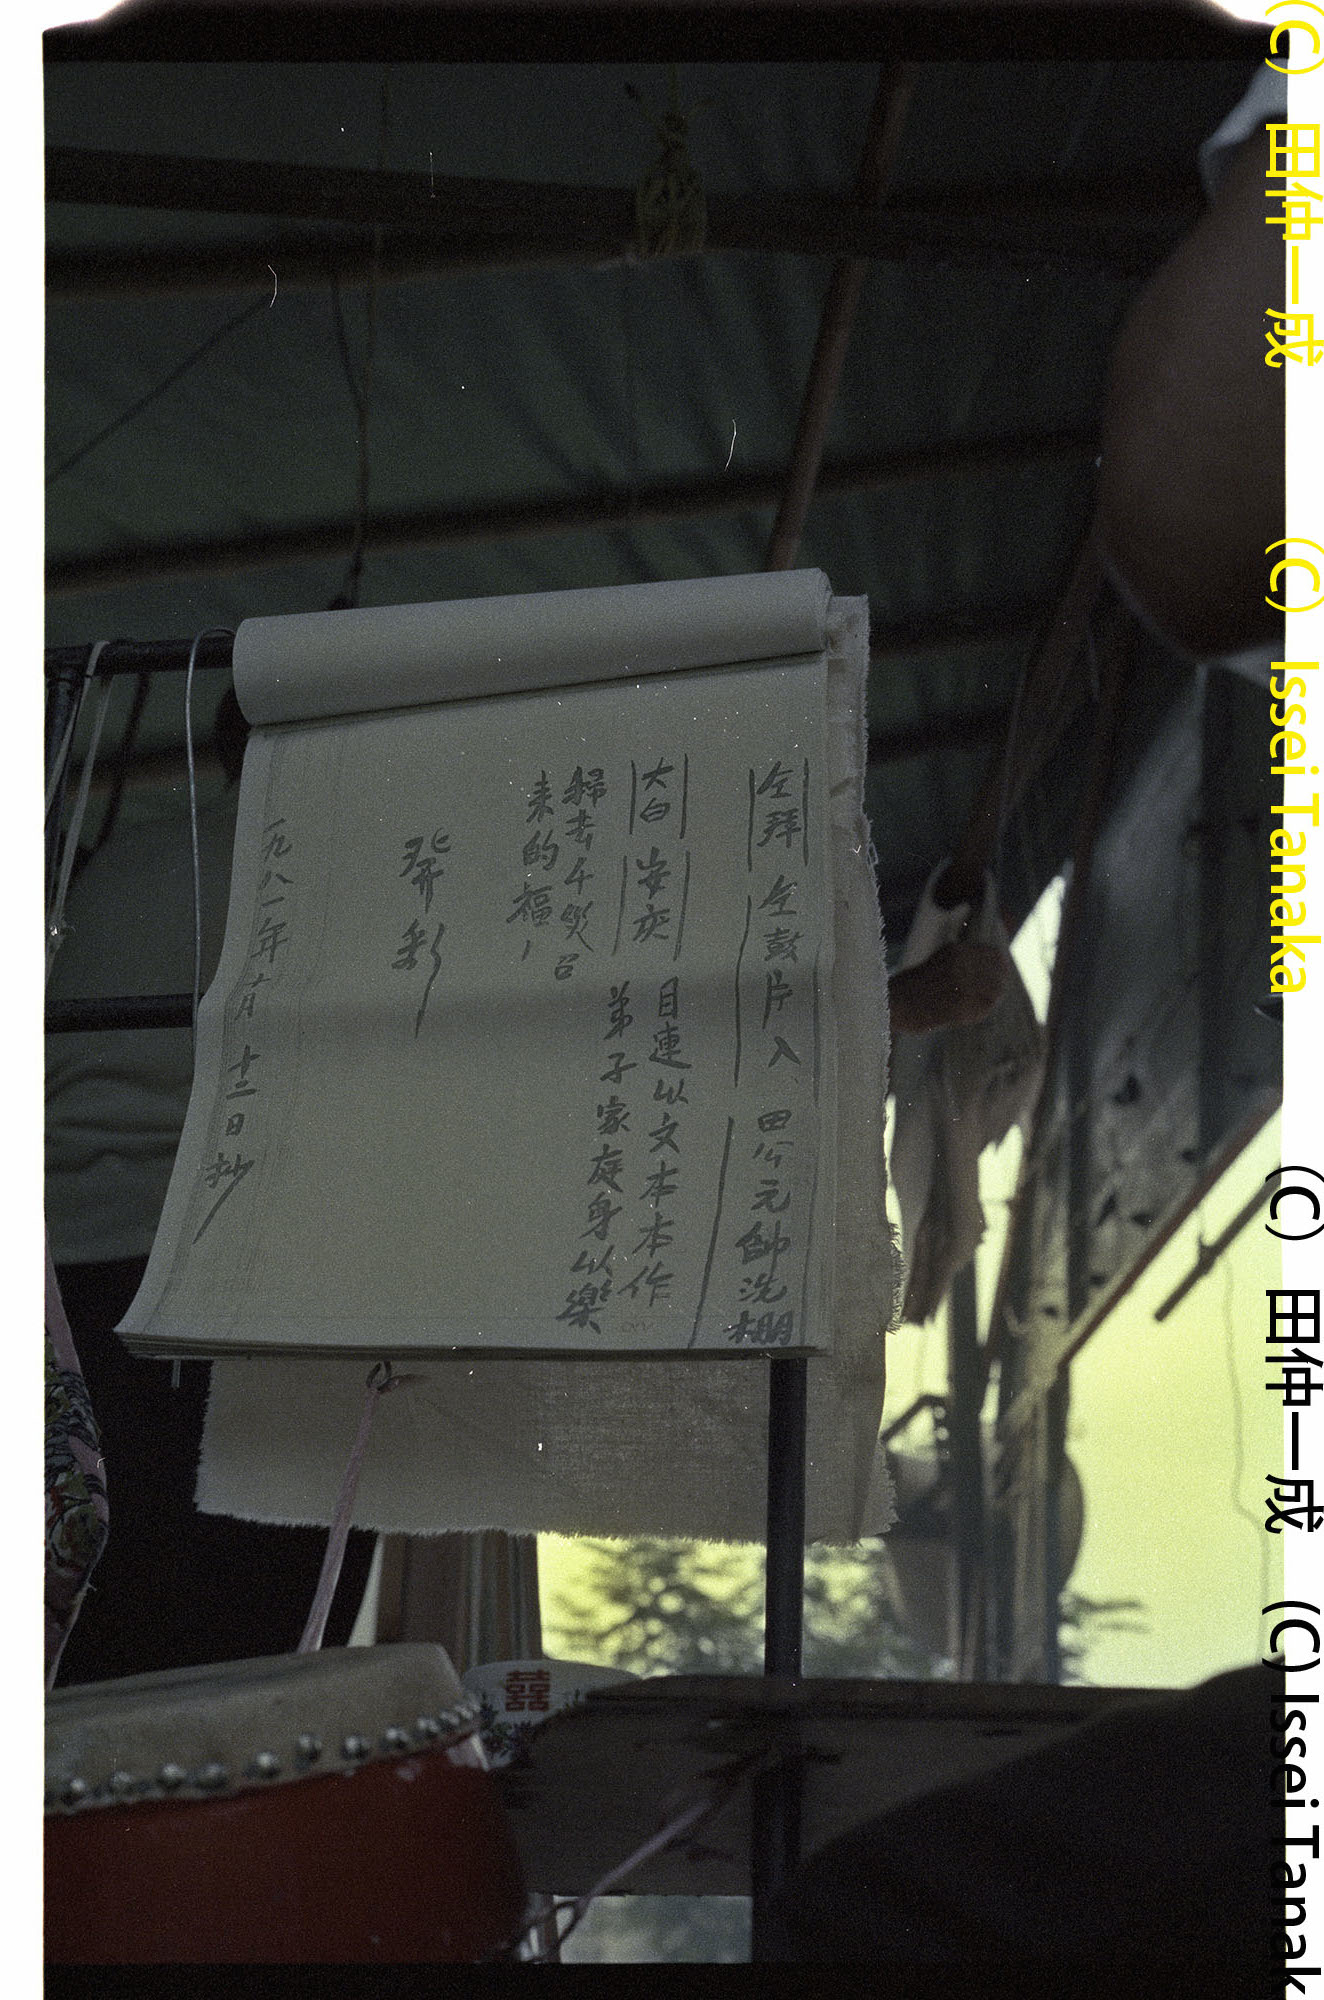 仝拜 仝鼓片入 田公元帥洗棚
大白 安爽 目連以文本本作
弟子家庭身以樂
歸去千災召
来的福
發彩
一九八一年十月十二日抄
囍
(C) 田仲一成 (C) Issei Tanaka
(C) 田仲一成 (C) Issei Tanak